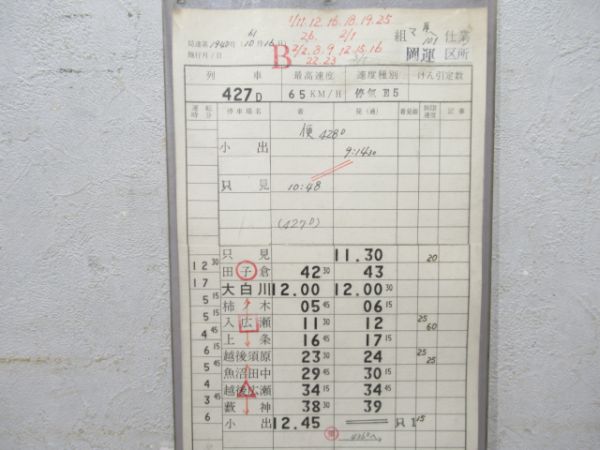 1/11.12.16.18.19.25
26. 2/1
2/2.8.9 12.15.16
22.23
局達第1940号 (61 10月16日)
施行月/日
B
組 仕業
岡運 区所
列車 最高速度 速度種別 けん引定数
427D 65 KM/H 停気 5
運転時分 停車場名 着 発(通) 着発線 制限速度 記事
便 428D
小出 9:14 30
只見 10:48
(427D)
只見 11.30 20
12 30
田子倉 42 30 43
17
大白川 12.00 12.00 30
5 15
柿ノ木 05 45 06 15
5 15
入広瀬 11 30 12 25 60
4 45
上条 16 45 17 15
6 15
越後須原 23 30 24 25 25
5 45
魚沼田中 29 45 30 15
4 15
越後広瀬 34 15 34 45
3 45
藪神 38 30 39
6
小出 12.45 只1 15